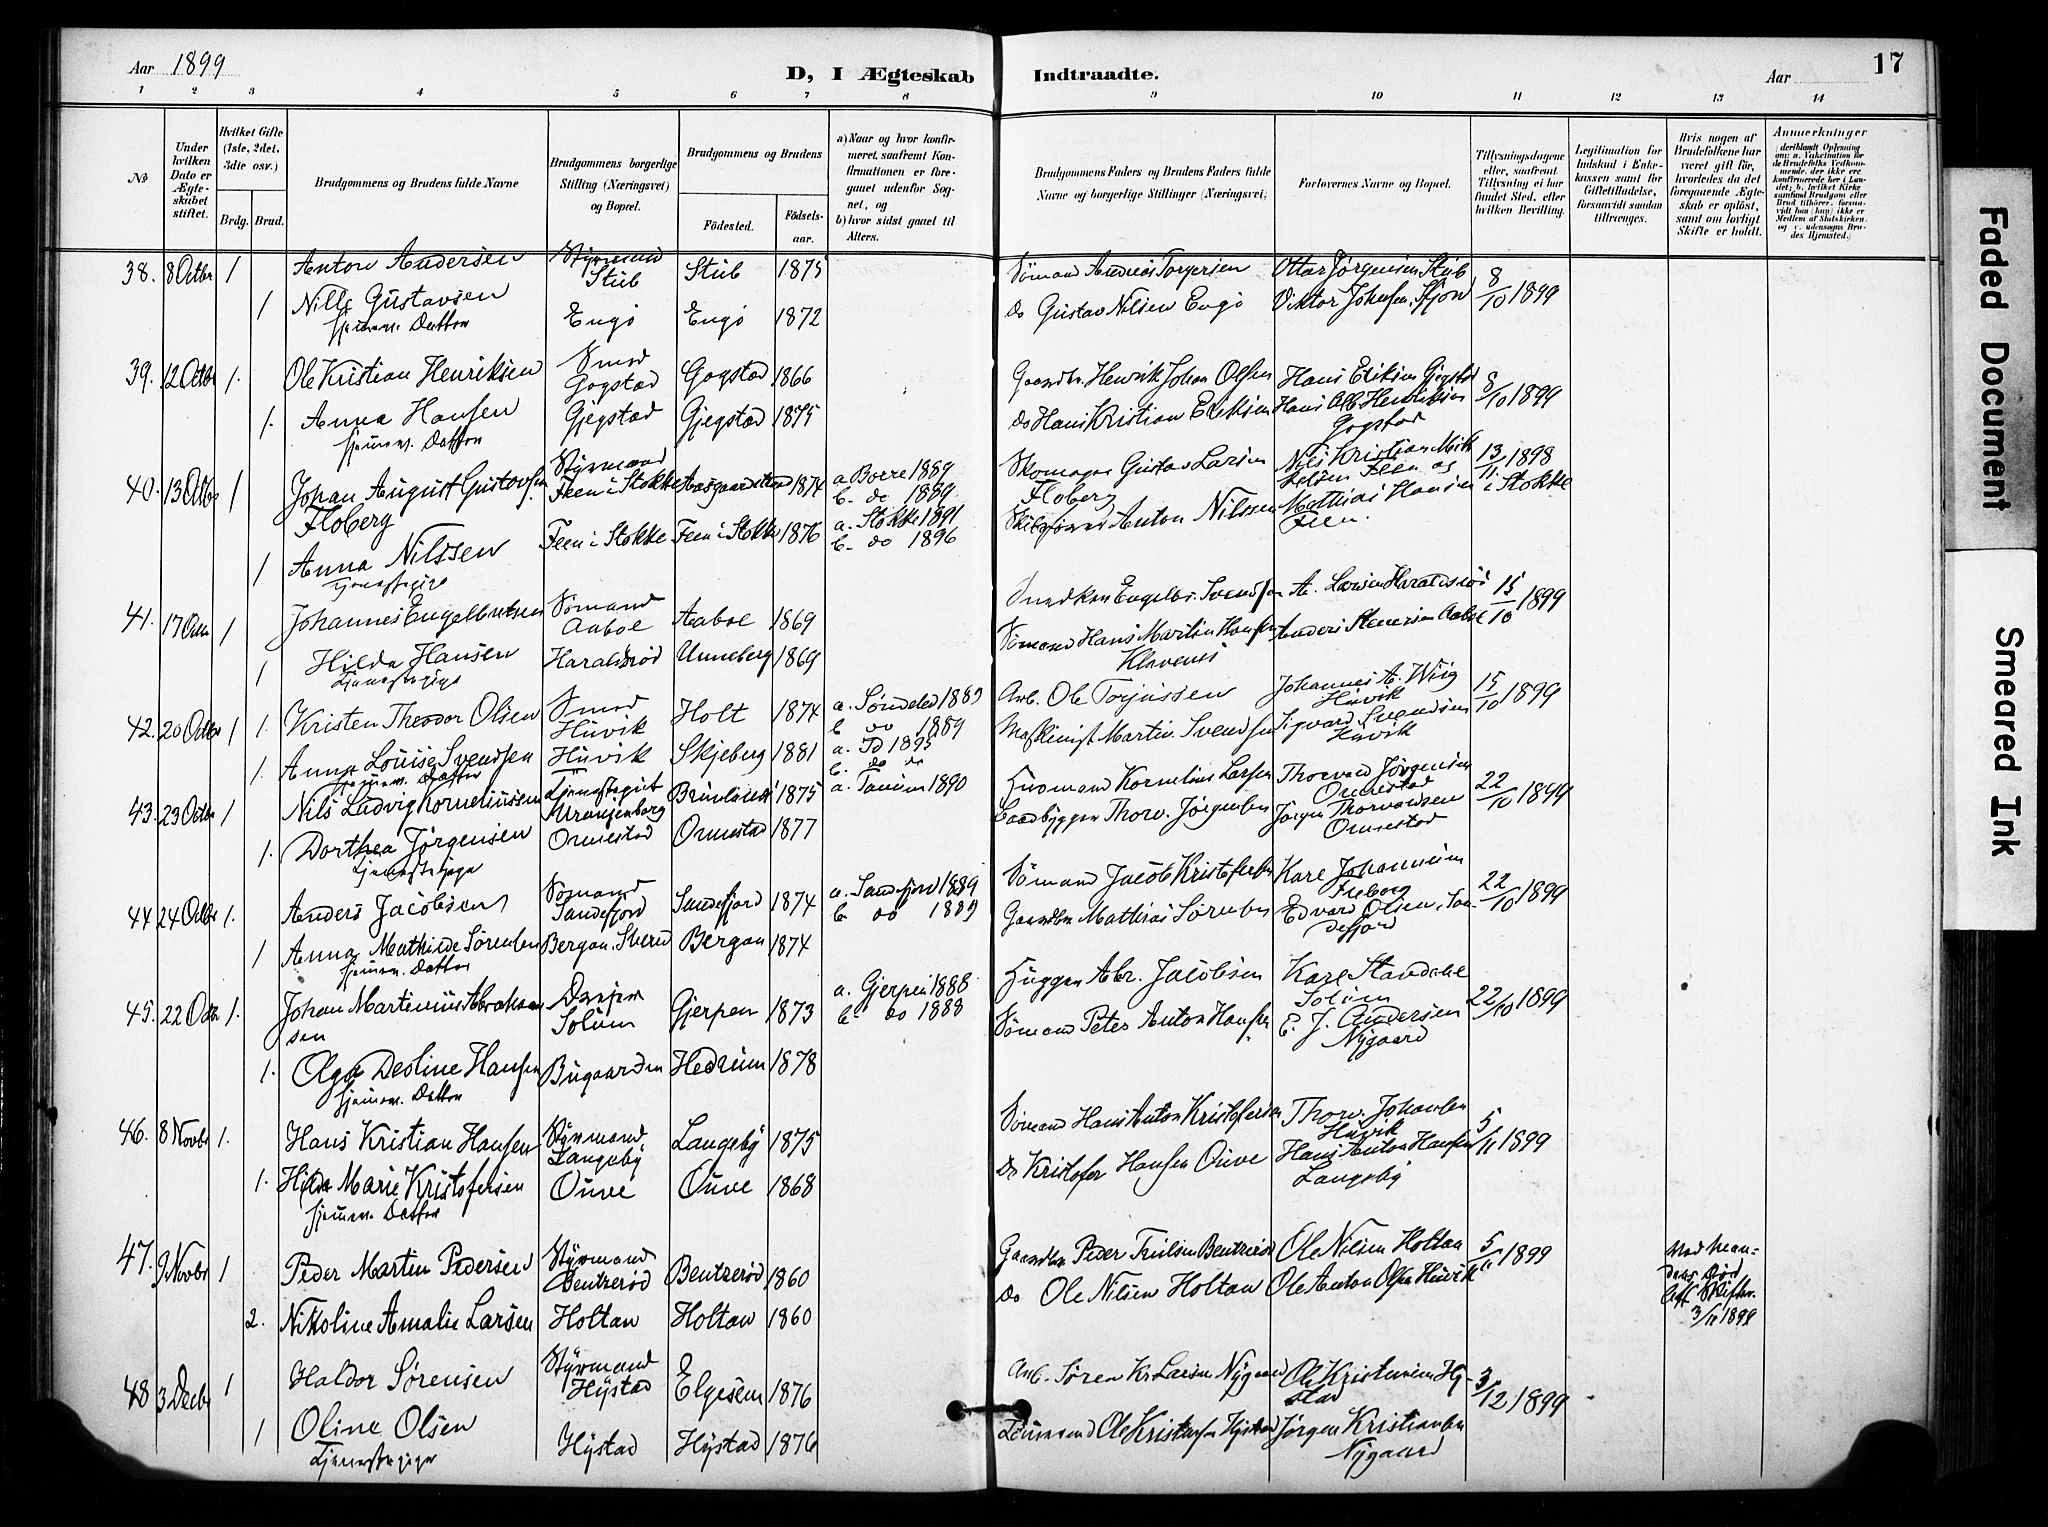 Aar 1899
D, I Ægteskab Indtraadte.
Aar
17
1 2 3 4 5 6 7 8 9 10 11 12 13 14
No
Under hvilken Dato er Ægteskabet stiftet.
Hvilket Gifte (1ste, 2det, 3die osv.)
Brdg. Brud.
Brudgommens og Brudens fulde Navne
Brudgommens borgerlige Stilling (Næringsvei) og Bopæl.
Brudgommens og Brudens
Fødested. Fødselsaar.
a) Naar og hvor konfirmeret, saafremt Konfirmationen er foregaaet udenfor Sognet, og
b) hvor sidst gaaet til Alters.
Brudgommens Faders og Brudens Faders fulde Navne og borgerlige Stillinger (Næringsvei)
Forlovernes Navne og Bopæl.
Tillysningsdagene eller, saafremt Tillysning ei har fundet Sted, efter hvilken Bevilling.
Legitimation for Indskud i Enkekassen samt for Giftetilladelse, forsaavidt saadan tiltrænges.
Hvis nogen af Brudefolkene har været gift før, hvorledes da det foregaaende Ægteskab er opløst, samt om lovligt Skifte er holdt.
Anmerkninger
deriblandt Oplysning om: a. Vakcination for de Brudefolks Vedkommende, der ikke ere konfirmerede her i Landet; b. hvilket Kirkesamfund Brudgom eller Brud tilhører, forsaavidt han (hun) ikke er Medlem af Statskirken, og c. udensogns Brudes Hjemsted.)
38. 8 Octbr 1 Anton Andersen Styrmand Stub Stub 1875 Sømand Andreas Torgersen Ottar Jørgensen Stub 8/10 1899
1 Nille Gustavsen hjemmev. Datter Engø Engø 1872 Do Gustav Nilsen Engø Viktor Johansen,
39. 12 Octbr 1. Ole Kristian Henriksen Smed Gogstad Gogstad 1866 Gaardbr. Henrik Johan Olsen Hans Eriksen Gjegstad 8/10 1899
1. Anna Hansen hjemmev. Datter Gjegstad Gjegstad 1875 Do Hans Kristian Eriksen Hans Alb. Henriksen Gogstad
40. 13 Octbr 1 Johan August Gustavsen Floberg Styrmand Feen i Stokke Aasgaardstrand 1874 a Borre 1889 b. do 1889 Skomager Gustav Larsen Floberg Nils Kristian Mikkelsen Feen og 13/11 1898 i Stokke
1 Anna Nilssen Tjenestepige Feen i Stokke Feen i Stokke 1876 a. Stokke 1891 b. do 1896 Skibsfører Anton Nilssen Mathias Hansen Feen.
41. 17 Octbr 1 Johannes Engelbretsen Sømand Aaboe Aaboe 1869 Snedker Engelbr. Svendsen A. Larsen Haraldsrød 15/10 1899
1 Hilda Hansen Tjenestepige Haraldsrød Unneberg 1869 Sømand Hans Martin Hansen Klavenes Anders Steversen Aaboe
42. 20 Octbr 1 1. Kristen Theodor Olsen Smed Huvik Holt 1874 a. Søndeled 1889 b do 1889 Arb. Ole Torjussen Johannes A. Wiig Huvik 15/10 1899
1. Anna Louise Svendsen hjemmev. Datter Huvik Skjeberg 1881 a. Id 1895 b. do do Maskinist Martin Svendsen Sigvard Svendsen Huvik
43. 23 Octbr 1 Nils Ludvig Korneliussen Tjenestegut Uranienborg Brunlanes 1875 a. Tanum 1890 Husmand Kornelius Larsen Thorvald Jørgensen Ormestad 22/10 1899
1. Dorthea Jørgensen Tjenestepige Ormestad Ormestad 1877 Baadbygger Thorv. Jørgensen Jørgen Thorvaldsen Ormestad
44 24 Octbr 1. Anders Jacobsen Sømand Sandefjord Sandefjord 1874 a. Sandefjord 1889 b. do 1889 Sømand Jacob Kristofersen Karl Johannesen Freberg 22/10 1899
1 Anna Mathilde Sørensen hjemmev. Datter Bergan, Bergan 1874 Gaardbr. Mathias Sørensen Edvard Olsen, Sandefjord
45. 22 Octr 1. Johan Martinius Abrahamsen Dreier Solum Gjerpen 1873 a. Gjerpen 1888 b. do 1888 Hugger Abr. Jacobsen Karl Standahl Solum 22/10 1899
1. Olga Deoline Hansen hjemmev. Datter Bugaarden Hedrum 1878 Sømand Peter Anton Hansen E. J. Andersen Nygaard
46. 8 Novbr 1. Hans Kristian Hansen Styrmand Langeby Langeby 1875 Sømand Hans Anton Kristofersen Thorv. Johansen Huvik 5/11 1899
1. Hilda Marie Kristofersen hjemmev. Datter Ouve Ouve 1868 Do Kristofer Hansen Ouve Hans Anton Hansen Langeby
47. 9 Novbr 1 Peder Martin Pedersen Styrmand Bentzerød Bentzerød 1860 Gaardbr Peder Bentzerød Ole Nilsen Holtan 5/11 1899 Ved Mandens Død
2. Nikoline Amalie Larsen Holtan Holtan 1860 Do Ole Nilsen Holtan Ole Anton Olsen Huvik Att. Skifter. 3/11 1899
48 3 Decbr 1 Haldor Sørensen Styrmand Hystad Elgesem 1876 Arb. Søren Kr. Larsen Nygaard Ole Kristensen Hystad 3/12 1899
1 Oline Olsen Tjenestepige Hystad Hystad 1876 Ole Kristensen Hystad Jørgen Kristiansen Nygaard
Faded Document
Smeared Ink